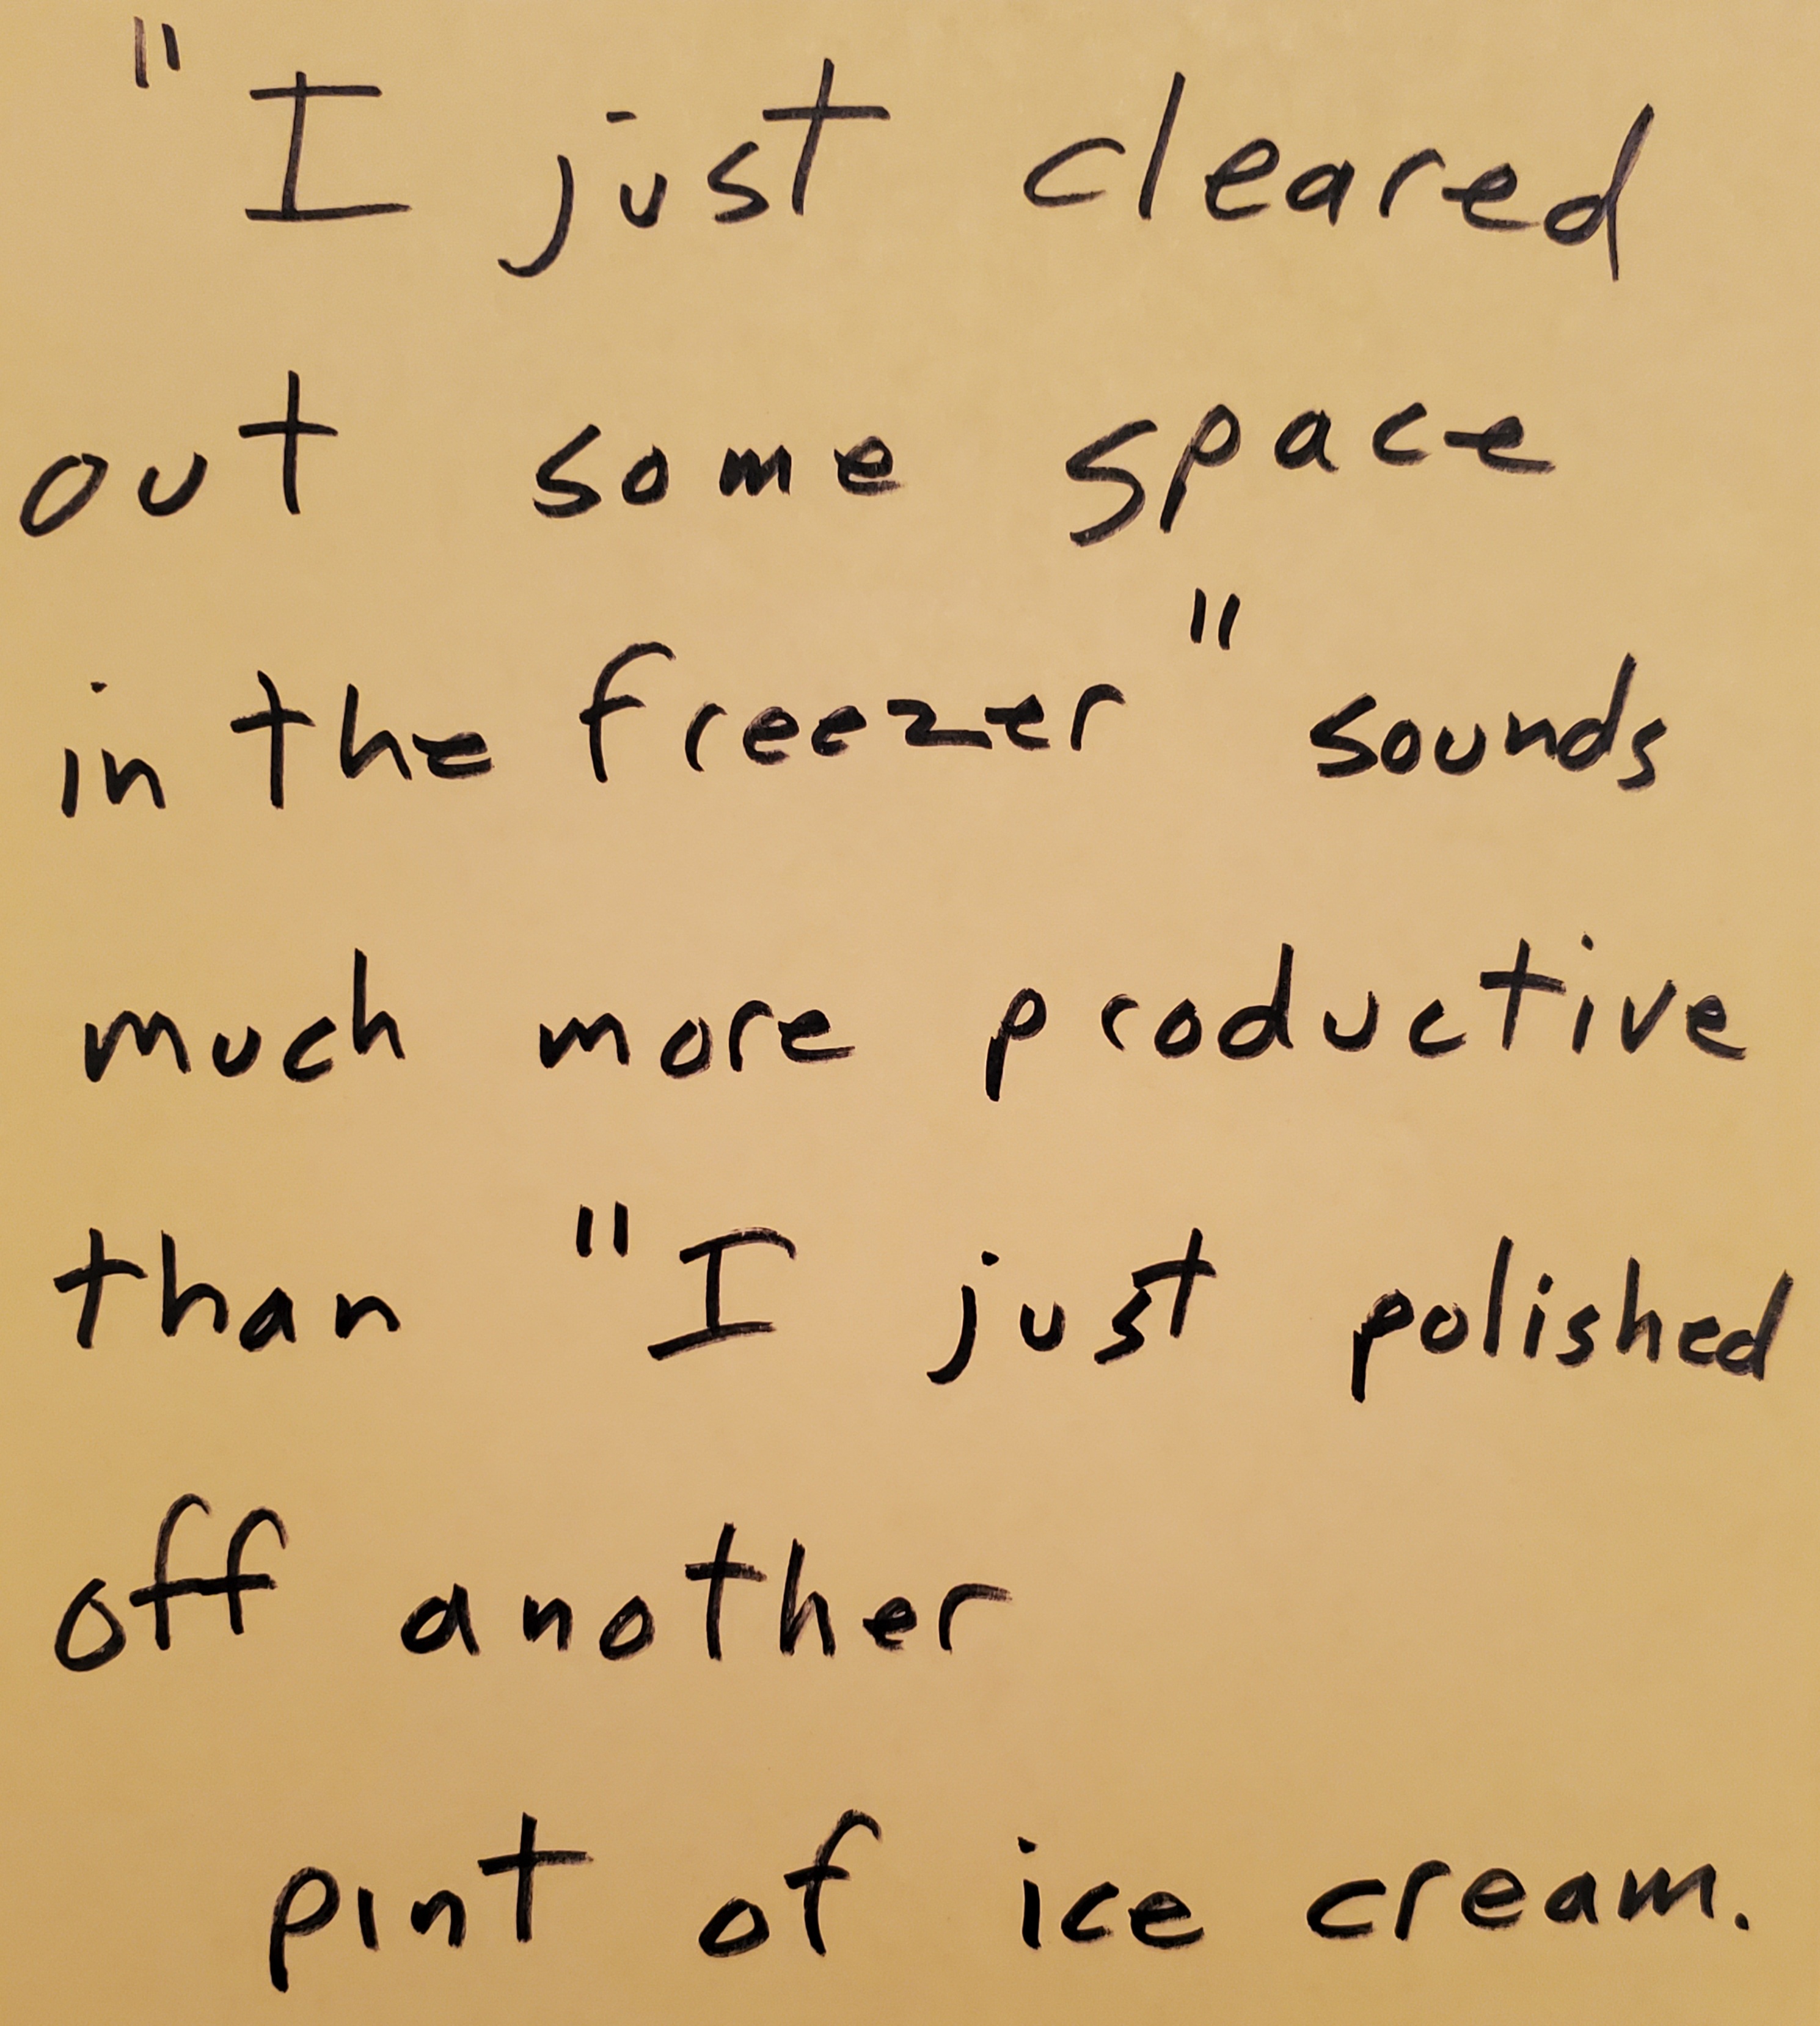 "I just cleared
out some space
in the freezer" sounds
much more productive
than "I just polished
off another
pint of ice cream.